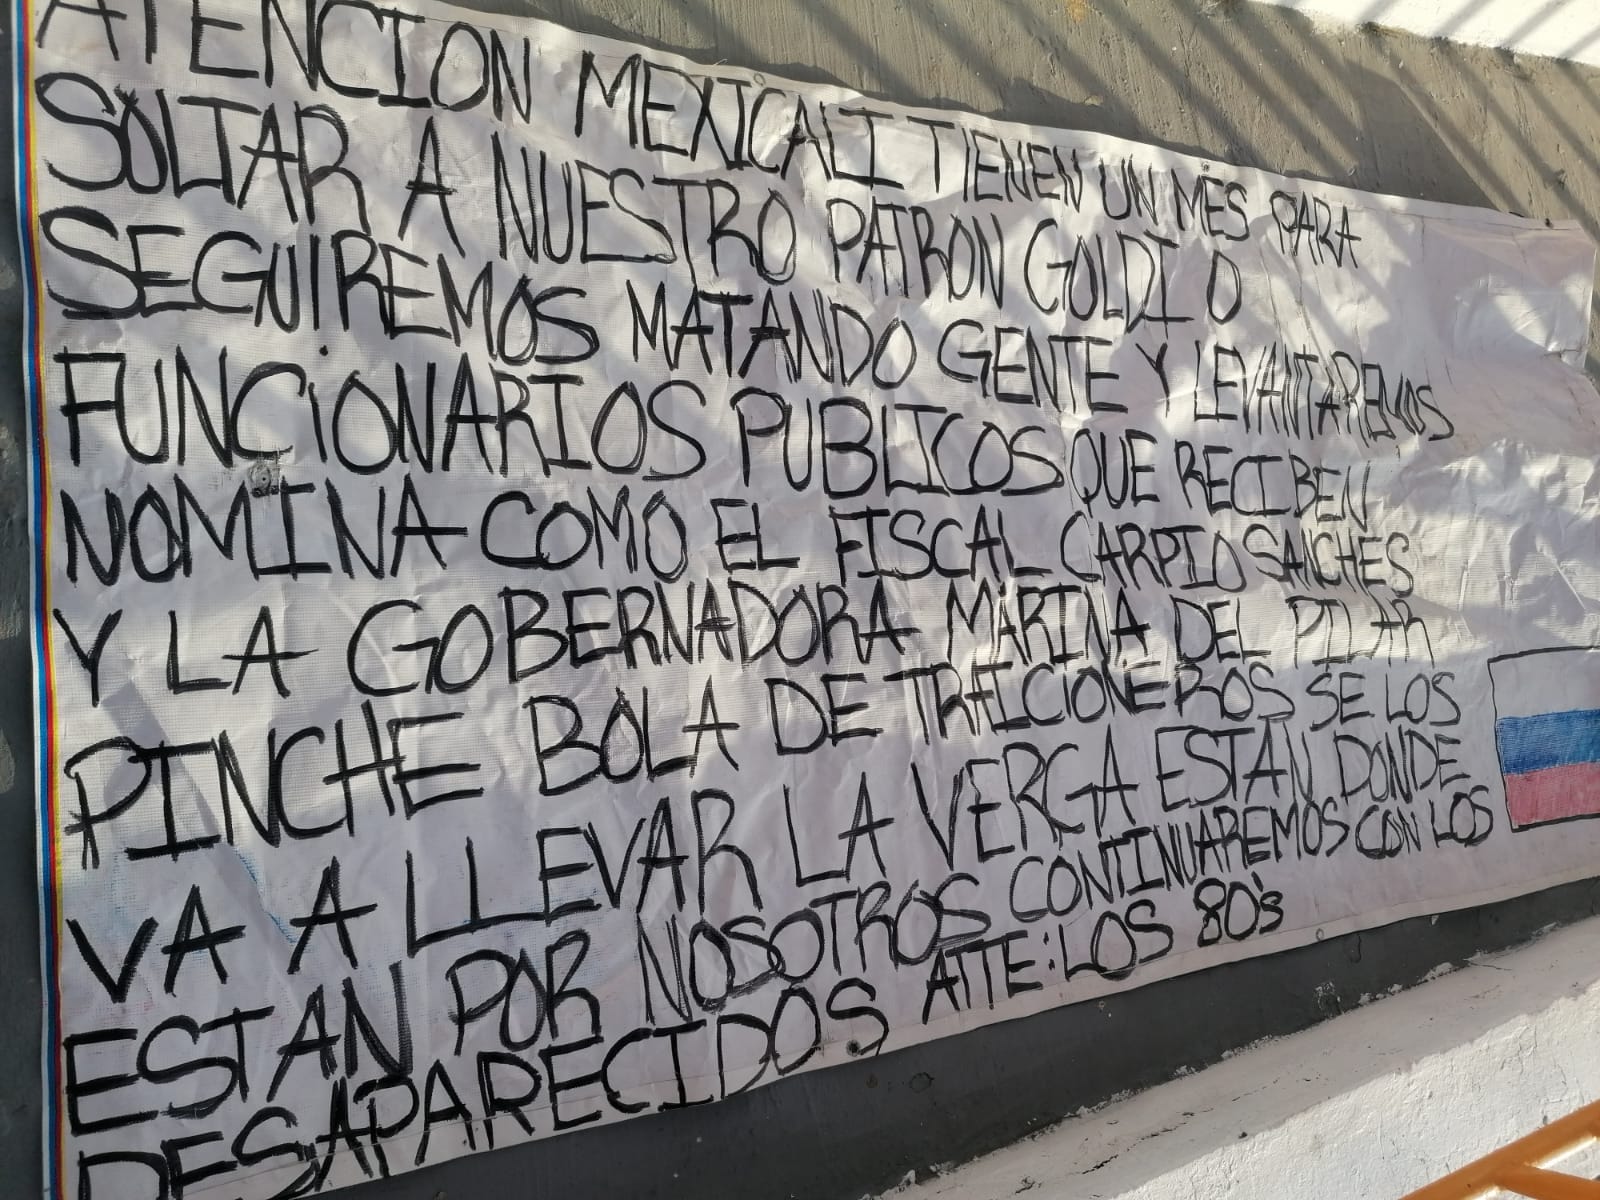 ATENCION MEXICALI TIENEN UN MES PARA
SOLTAR A NUESTRO PATRON GOLDI O
SEGUIREMOS MATANDO GENTE Y LEVANTAREMOS
FUNCIONARIOS PUBLICOS QUE RECIBEN
NOMINA COMO EL FISCAL CARPIO SANCHES
Y LA GOBERNADORA MARINA DEL PILAR
PINCHE BOLA DE TRAICIONEROS SE LOS
VA A LLEVAR LA VERGA ESTAN DONDE
ESTAN POR NOSOTROS CONTINUAREMOS CON LOS
DESAPARECIDOS ATTE: LOS 80's